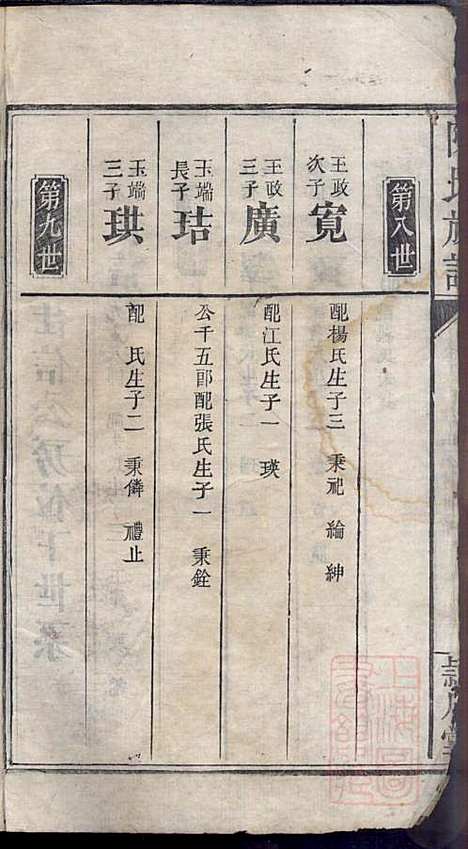 陳氏族譜
第八世
王政次子 寬 配楊氏生子三 秉祀 綸 紳
王政三子 廣 配江氏生子一 瑛
玉端長子 珤 公千五郎配張氏生子一 秉銓
玉端三子 珙 配 氏生子二 秉儕 禮止
第九世